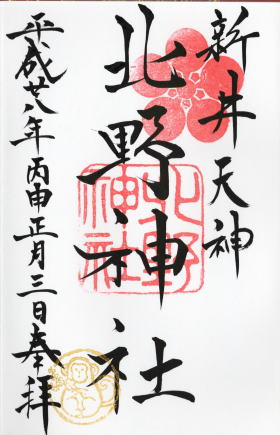 新井天神
北野神社
平成廿八年丙申正月三日奉拝
北野
神社